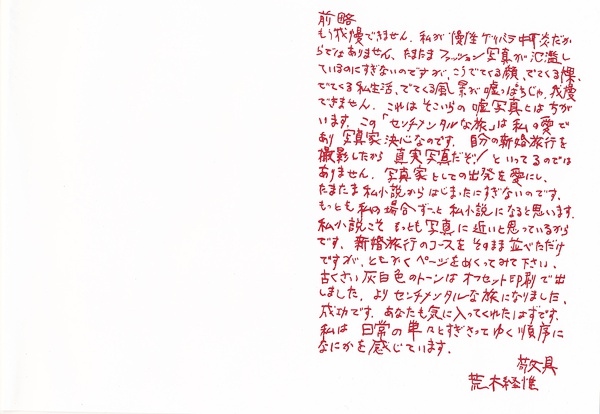 前略
もう我慢できません。私が慢性ゲリバラ中耳炎だか
らではありません、たまたまファッション写真が氾濫し
ているのにすぎないのですが、こうでてくる顔、でてくる裸、
でてくる私生活、でてくる風景が嘘っぱちじゃ、我慢
できません。これはそこいらの嘘写真とはちが
います。この「センチメンタルな旅」は私の愛で
あり写真家決心なのです。自分の新婚旅行を
撮影したから真実写真だぞ!といってるのでは
ありません。写真家としての出発を愛にし、
たまたま私小説からはじまったにすぎないのです。
もっとも私の場合ずーっと私小説になると思います。
私小説こそもっとも写真に近いと思っているから
です。新婚旅行のコースをそのまま並べただけ
ですが、ともかくページをめくってみて下さい。
古くさい灰白色のトーンはオフセット印刷で出
しました。よりセンチメンタルな旅になりました、
成功です。あなたも気に入ってくれたはずです。
私は日常の単々とすぎさってゆく順序に
なにかを感じています。
敬具
荒木経惟